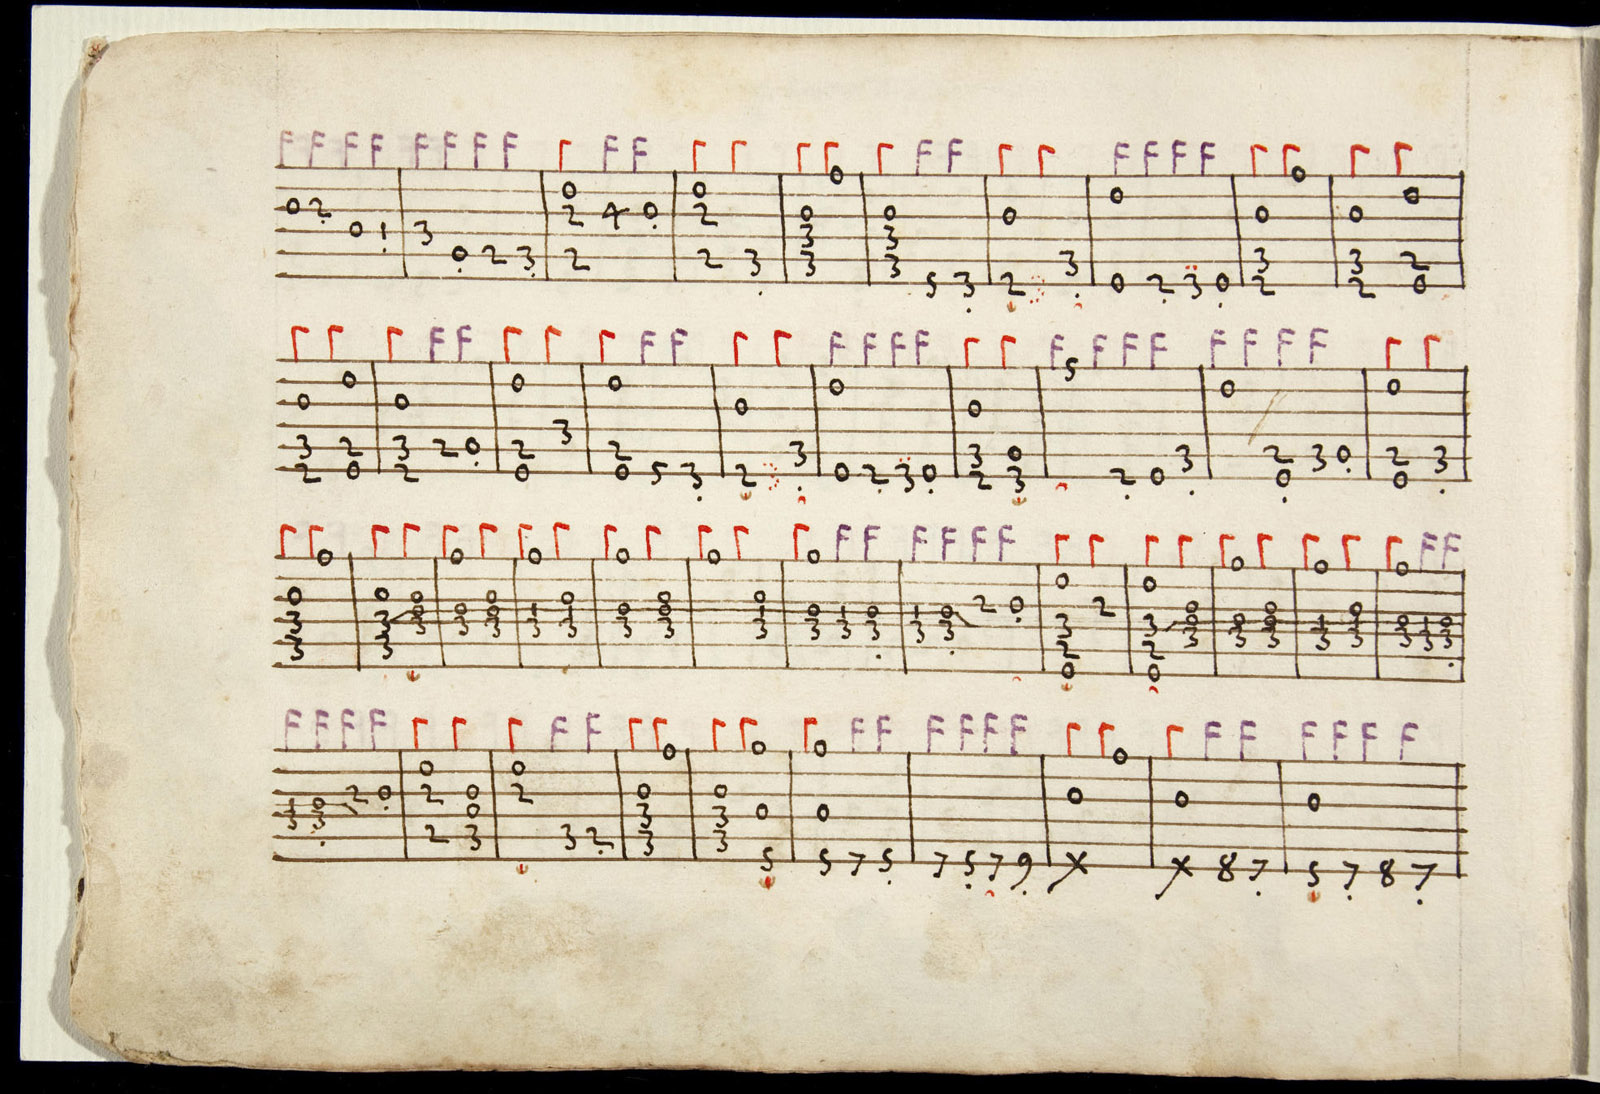 F F F F F F F F Γ F F Γ Γ Γ Γ Γ F F Γ Γ F F F F Γ Γ Γ Γ
0 0
0 0 0 0
0 2 2 4 0 2 0 0 0 0 0
0 1 3 3 3
0 2 3 2 2 3 3 3 3 3 3 2
5 3 2 0 2 3 0 2 2 0
Γ Γ Γ F F Γ Γ Γ F F Γ Γ F F F F Γ Γ F F F F F F F F Γ Γ
5
0 0 0 0 0 0
0 0 0 0
3
3 2 3 2 0 2 2 3 3 0 3 2 3 0 2 3
2 0 2 0 0 5 3 2 0 2 3 0 2 3 2 0 0 0
Γ Γ Γ Γ Γ Γ Γ Γ Γ Γ Γ Γ Γ F F F F F F Γ Γ Γ Γ Γ Γ Γ Γ Γ F F
0 0 0 0 0 0 0 0 0
0 0
0 0 0 0 0 0 0 2 0 2 0 0 0
3 3 0 0 0 1 1 0 0 1 0 1 0 1 0 3 3 0 0 0 1 1 0 1 0
3 3 3 3 3 3 3 3 3 3 3 3 3 3 3 2 2 3 3 3 3 3 3 3 3
0 0
F F F F Γ Γ Γ F F Γ Γ Γ Γ Γ F F F F F F Γ Γ Γ F F F F F F
0 0 0 0
0 0
2 0 2 0 2 0 0 0 0 0
1 0 0 3 3 0 0
3 3 2 3 3 2 3 3
5 5 7 5 7 5 7 9 x x 8 7 5 7 8 7